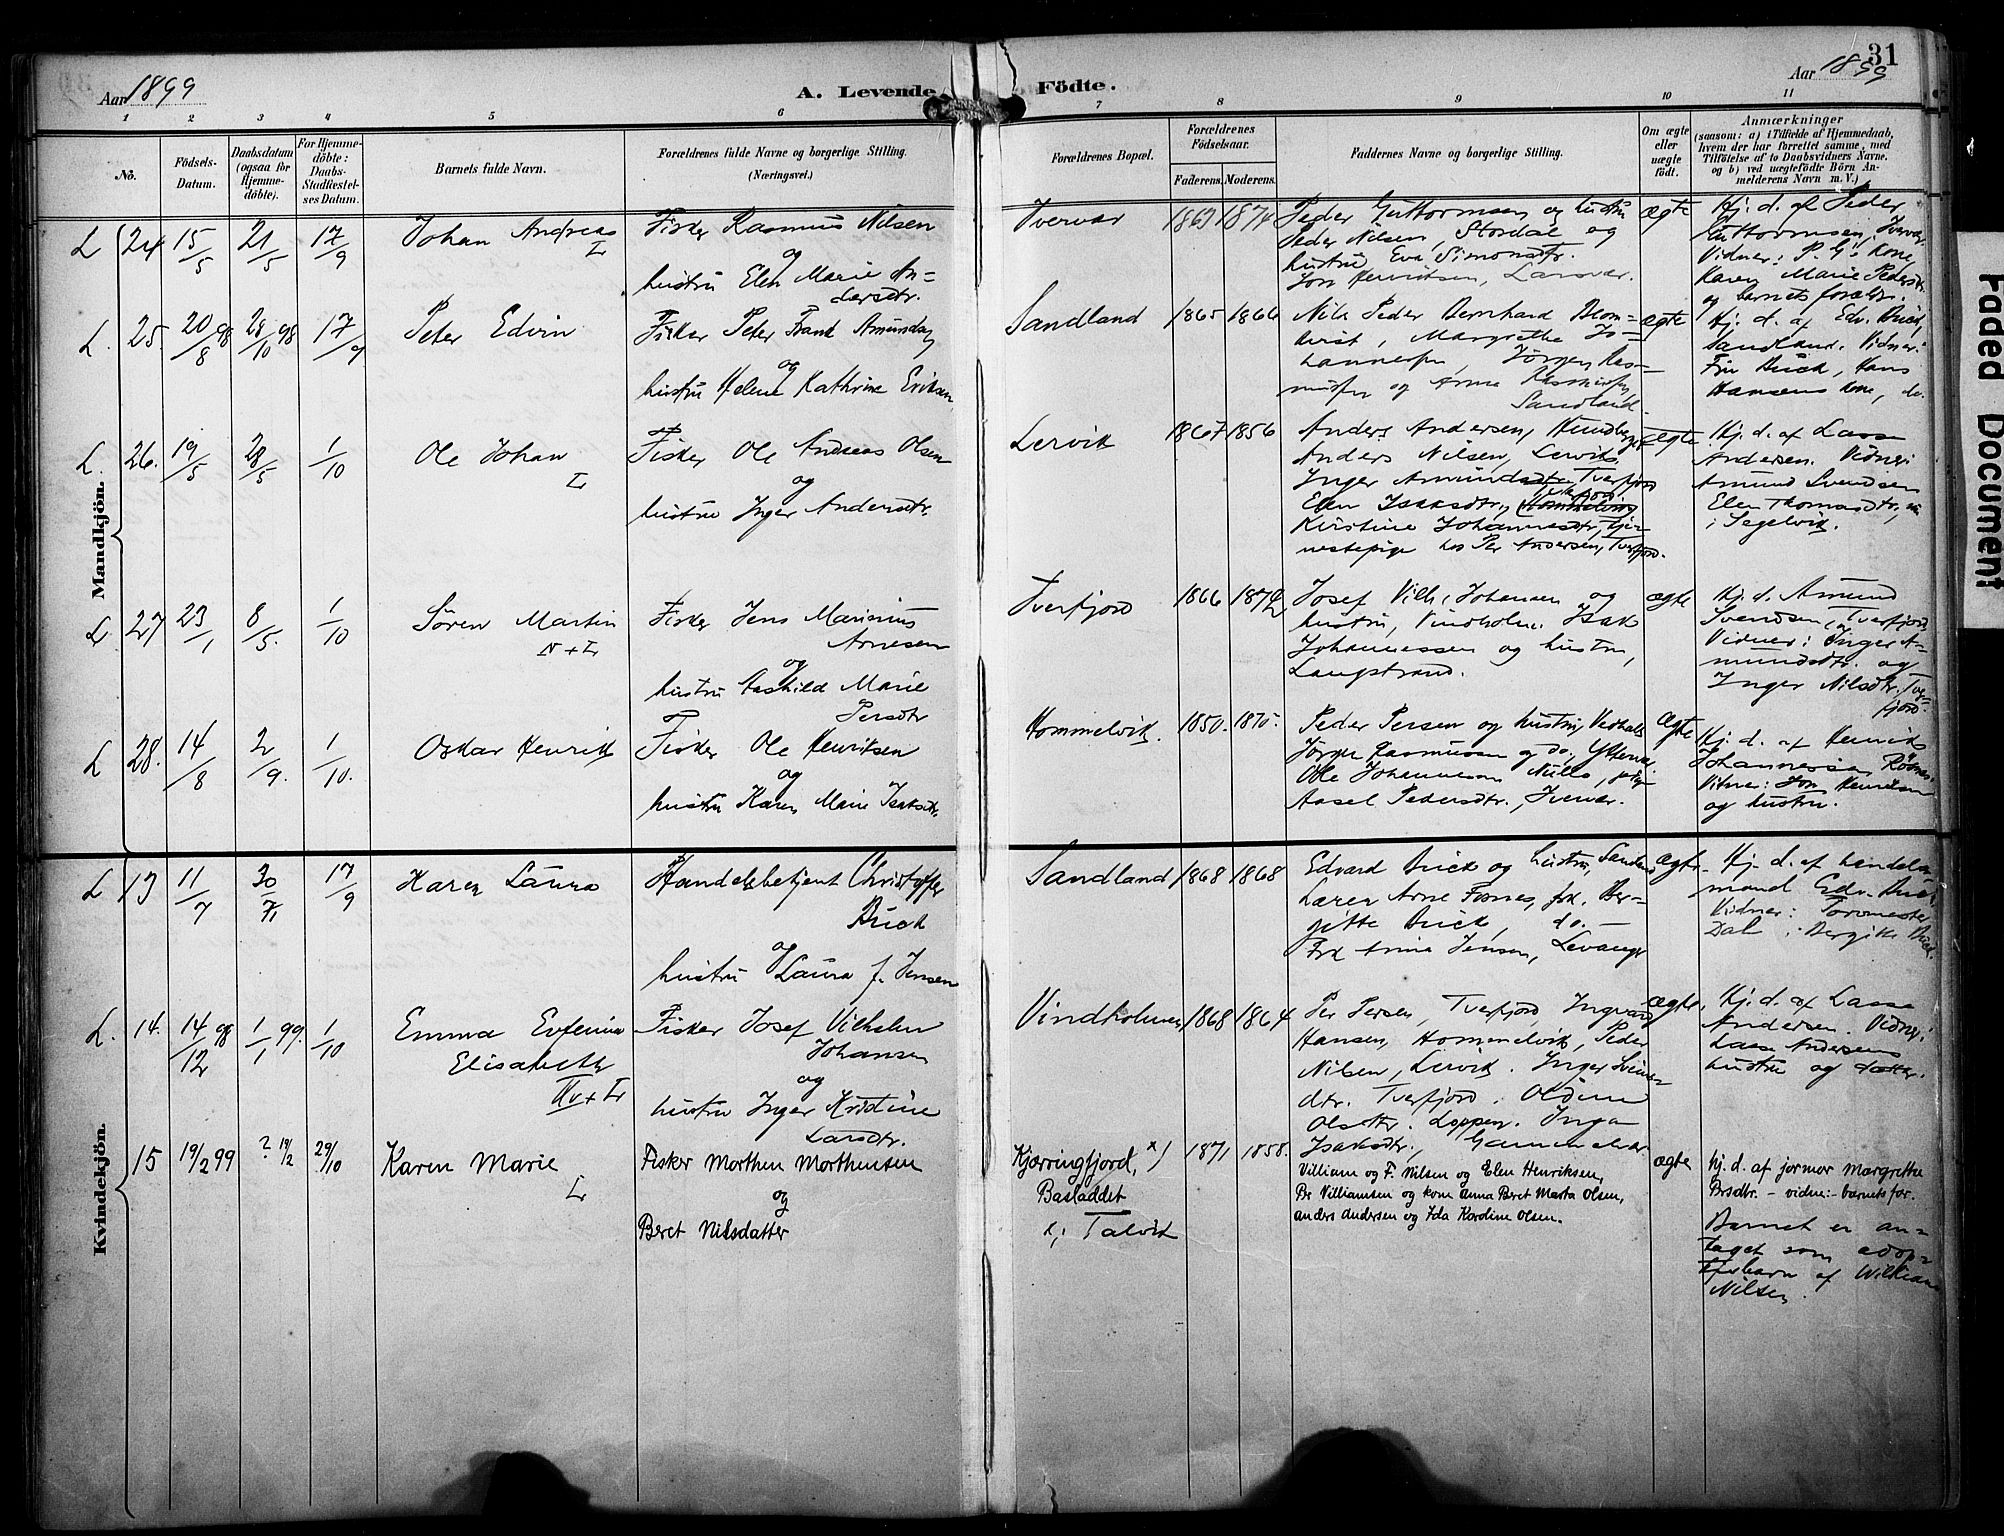 31
Aar 1899
A. Levende Födte.
Aar 1899
1 2 3 4 5 6 7 8 9 10 11
No.
Födsels-
Datum.
Daabsdatum
(ogsaa for
Hjemme-
döbte).
For Hjemme-
döbte:
Daabs-
Stadfæstel-
ses Datum.
Barnets fulde Navn.
Forældrenes fulde Navne og borgerlige Stilling.
(Næringsvei.)
Forældrenes Bopæl.
Forældrenes
Födselsaar.
Faderens. Moderens.
Faddernes Navne og borgerlige Stilling.
Om ægte
eller
uægte
födt.
Anmærkninger
(saasom: a) i Tilfælde af Hjemmedaab,
hvem der har forrettet samme, med
Tilföielse af to Daabsvidners Navne.
og b) ved uægtefödte Börn An-
melderens Navn m. V.)
Mandkjön.
L 24 15/5 21/5 17/9
Johan Andreas
L
Fisker Rasmus Nilsen
og
hustru Elen Marie An-
dersdtr.
Iversvær 1874
Peder Guttormsen og hustru
Peder Nilsen, Stordal og
hustru Eva Simonsdtr.
Jon Henriksen, Larsvær.
ægte
Hj. d. af Peder
Guttormsen, Iversvær
Vidner: P. G's kone
Karen Marie Pedersdtr
og barnets forældr.
L. 25. 20/8 98 28/10 98 17/9
Peter Edvin
Fisker Peter Frank Amundsen
og
hustru Helene Kathrine Eriksen
Sandland 1865 1866
Nils Peder Bernhard Blom-
kvist, Margrethe Jo-
hannesen, Jörgen Ras-
mussen og Anna Rasmussen
Sandland.
ægte
Hj. d. af Edv. Buck,
Sandland. Vidner:
Fru Buck, Hans
Hansens kone, do.
L. 26. 19/5 28/5 1/10
Ole Johan
L
Fisker Ole Andreas Olsen
og
hustru Inger Andersdtr.
Lervik 1867 1856
Anders Andersen,
Anders Nilsen, Lervik
Inger Amundsdtr. Tverfjord
Elen Isaksdtr,
Kirstine Johannesdtr, tje-
nestepige hos Per Andersen, Tverfjord.
ægte
Hj. d. af Lasse
Andersen. Vidner:
Amund Svendsen
Elen Thomasdtr,
i Segelvik.
L 27 23/1 8/5. 1/10
Sören Martin
N + L
Fisker Jens Marinius
Arnesen
og
hustru Aashild Marie
Persdtr
Tverfjord 1866
Josef Vilh. Johansen og
hustru, Vindholm. Isak
Johannessen og hustru,
Langstrand.
ægte
Hj. d. Amund
Svendsen, Tverfjord
Vidner: Inger A-
mundsdtr. og
Inger Nilsdtr. Tver-
fjord.
L 28. 14/8 2/9. 1/10.
Oskar Henrik
Fisker Ole Henriksen
og
hustru Karen Marie Isaksdtr.
Hommelvik. 1850. 1875.
Peder Persen og hustru,
Jörgen Rasmussen og do,
Ole Johannesen
Aasel Pedersdtr., Iversvær.
Ægte
Hj. d. af Henrik
Johannessen
Vidner: Jon Henriksen
og hustru.
Kvindekjön.
L 13 11/7 30/7 17/9
Karen Laura
Handelsbetjent Christoffer
Buck
og
hustru Laura f. Jensen
Sandland 1868 1868
Edvard Buck og hustru, Sandland
Lærer Arne Fosnes, frk. Ber-
gitte Buck, do. –
Frk Anna Jensen, Levanger
ægte.
Hj. d. af handels-
mand Edv. Buck.
Vidner:
Dal, Bergitte Buck.
L. 14. 14/12 98 1/1 99. 1/10
Emma Eufemia
Elisabeth
Kv + L
Fisker Josef Vilhelm
Johansen
og
hustru Inger Kristine
Larsdtr.
Vindholmen 1868 1864
Per Persen, Tverfjord, Ingvard
Hansen, Hommelvik, Peder
Nilsen, Lervik. Inger Svens-
dtr. Tverfjord. Oldine
Olsdtr. Loppen. Inga
Isaksdtr.,
ægte,
Hj. d. af Lasse
Andersen. Vidner:
Lasse Andersens
hustru og datter.
15 19/2 99 ? 19/2 29/10
Karen Marie
L
Fisker Morthen Morthensen
og
Beret Nilsdatter
Kjærringfjord, x)
Basladdet
x, Talvik
1871 1858.
Villiam og F. Nilsen og Elen Henriksen,
Pr Villiamsen og kone Anna Beret Marta Olsen,
Anders Andersen og Ida Kardine Olsen.
ægte
Hj. d. af jormor Margrethe
Prsdtr. – vidne: – barnets for.
Barnet er an-
taget som adop-
tivbarn af William
Nilsen.
Faded Document